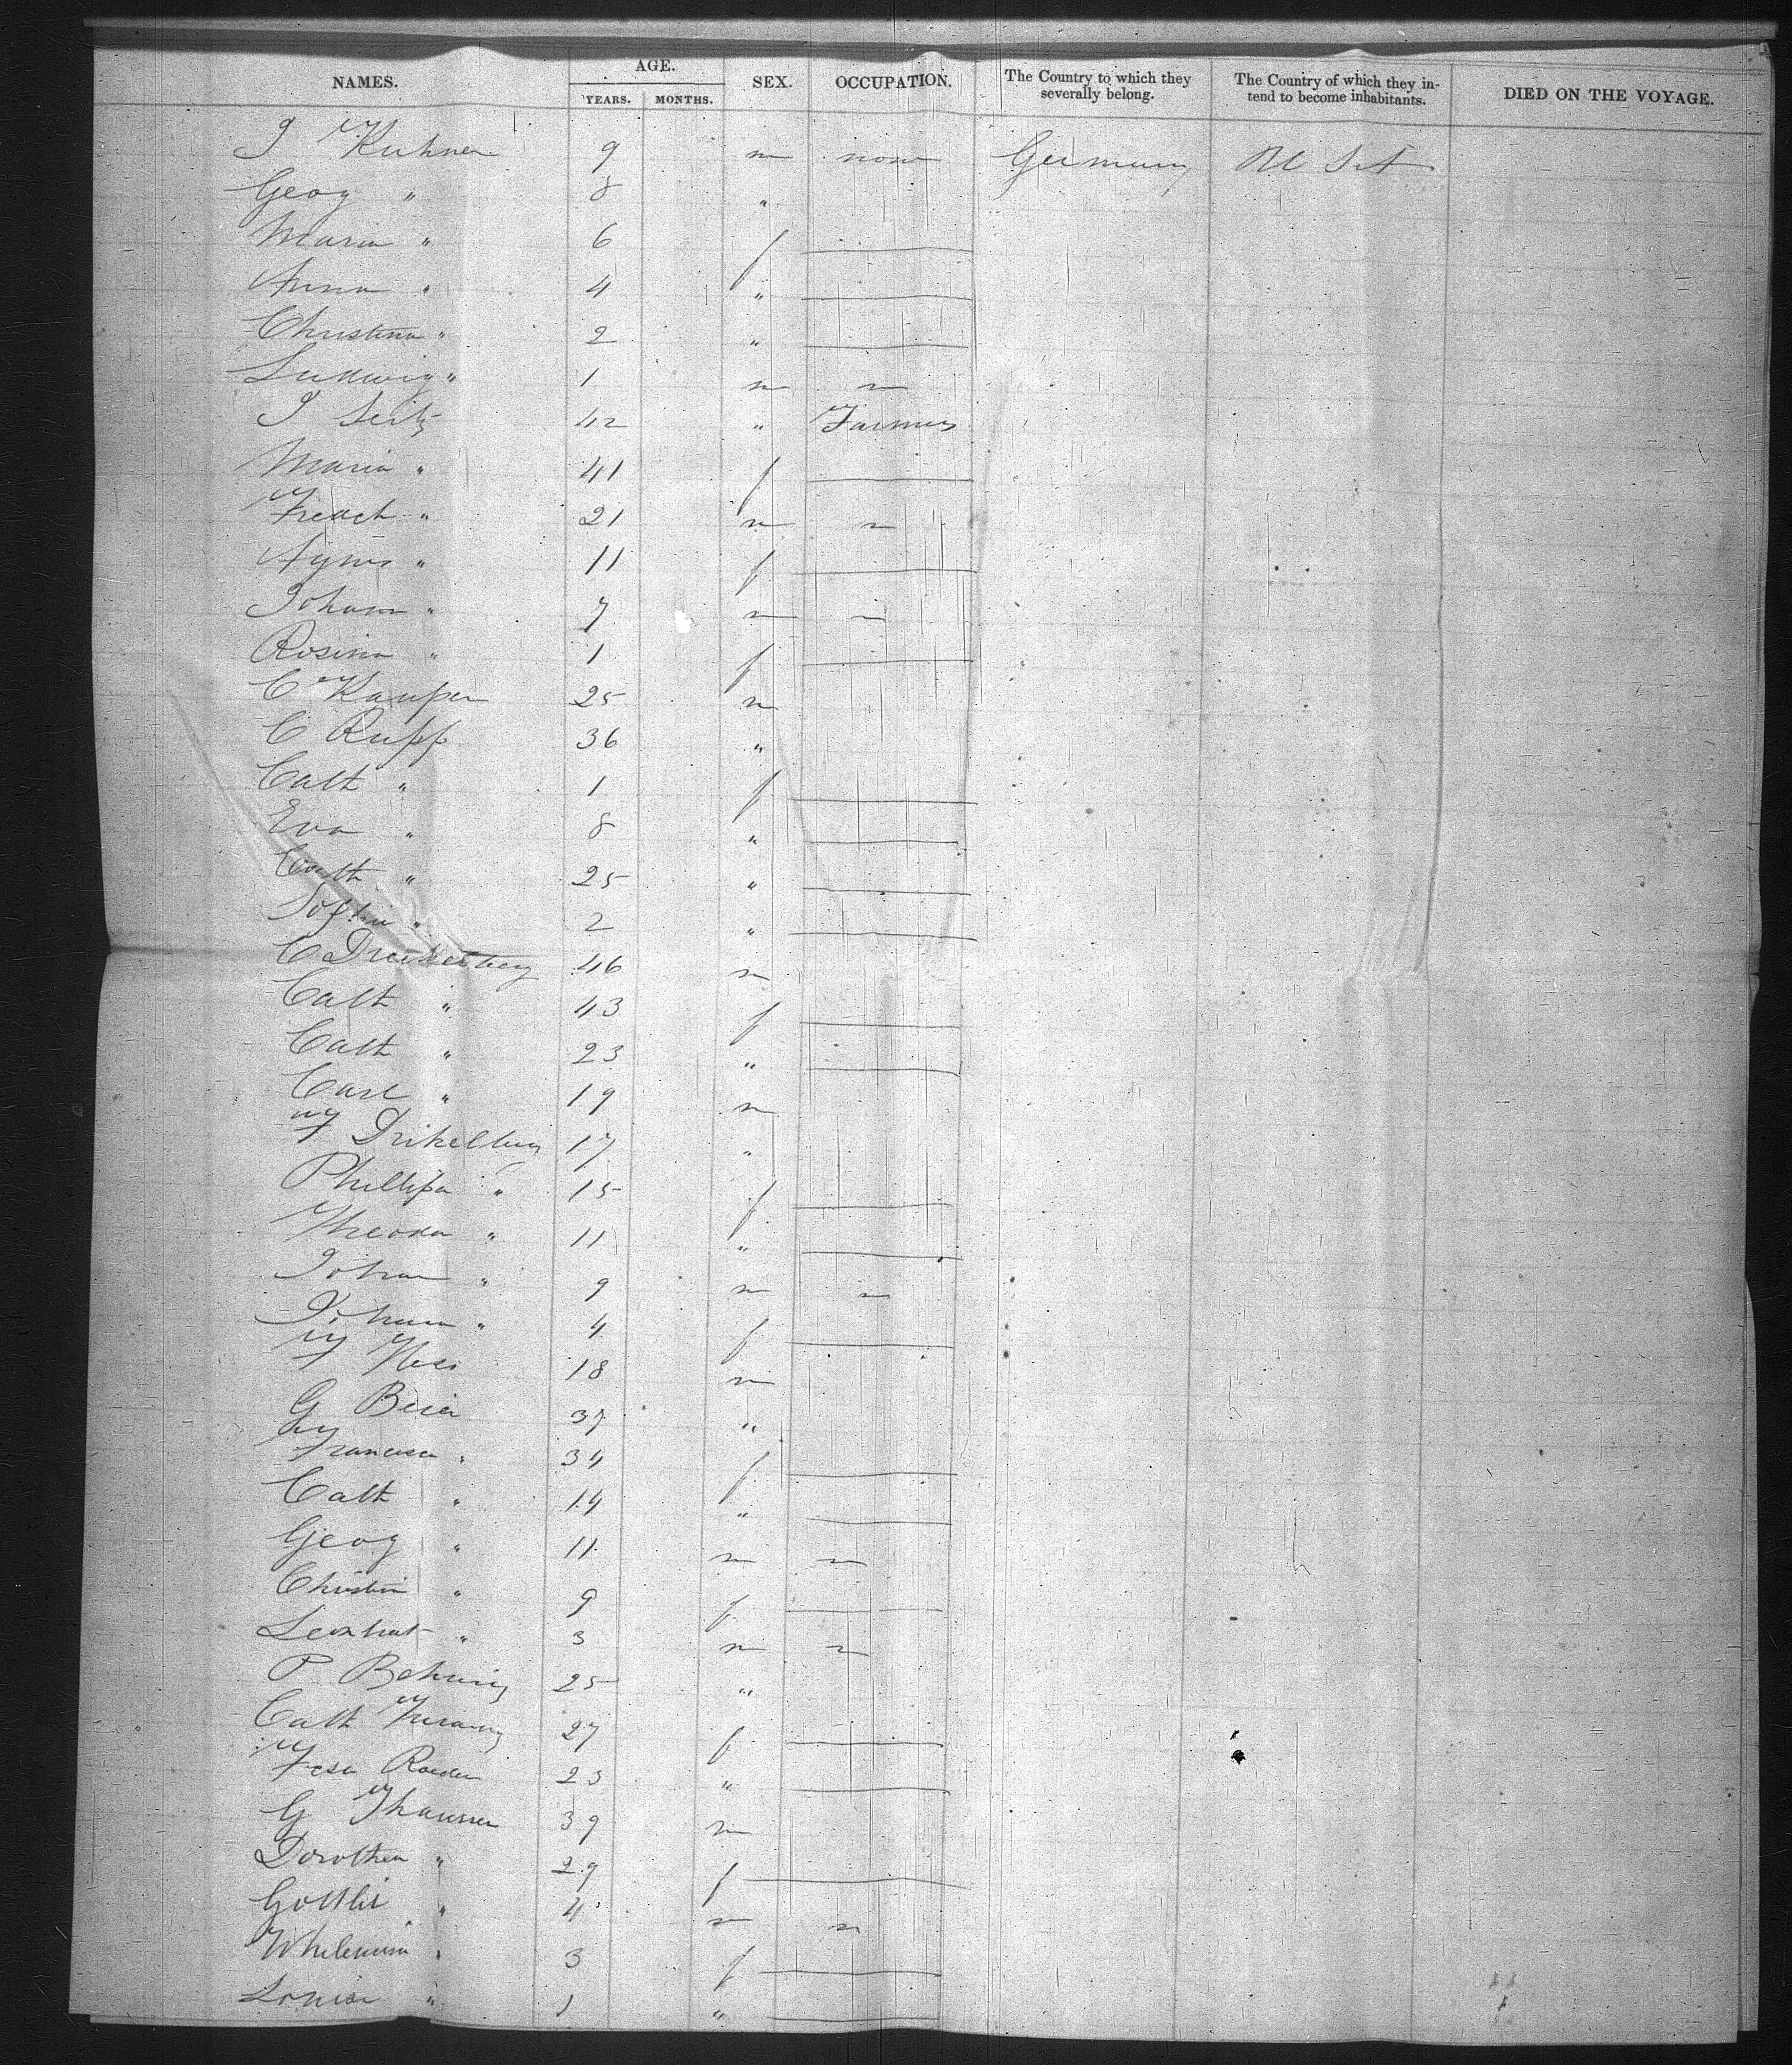 NAMES. AGE. YEARS. MONTHS. SEX. OCCUPATION. The Country to which they severally belong. The Country of which they intend to become inhabitants. DIED ON THE VOYAGE.
J Kuhner 9 m none Germany
Geog " 8 "
Maria " 6 f
Anna " 4 "
Christina " 2 "
Ludwig " 1 m
J Seitz 42 " Farmer
Maria " 41 f
Friedch " 21 m
Agnes " 11 f
Johann " 7 m
Rosina " 1 f
C Kaupen 25 m
C Rupp 36 "
Cath " 1 f
Eva " 8 "
Cath " 25 "
Sofia " 2 "
C 46 m
Cath " 43 f
Cath " 23 "
Carl " 19 m
F 17 "
Phillipa " 15 f
Theodor " 11 "
Johan " 9 m
Johann " 4 f
F Hess 18 m
G Beier 37 "
Francisca " 34 f
Cath " 14 "
Georg " 11 m
Christin " 9 f
Leonhat " 3 m
P Behring 25 "
Cath 27 f
Roeder 23 "
G Thaurer 39 m
Dorothea " 29 f
Gottlib " 4 m
Whilemina " 3 f
Louisa " 1 "